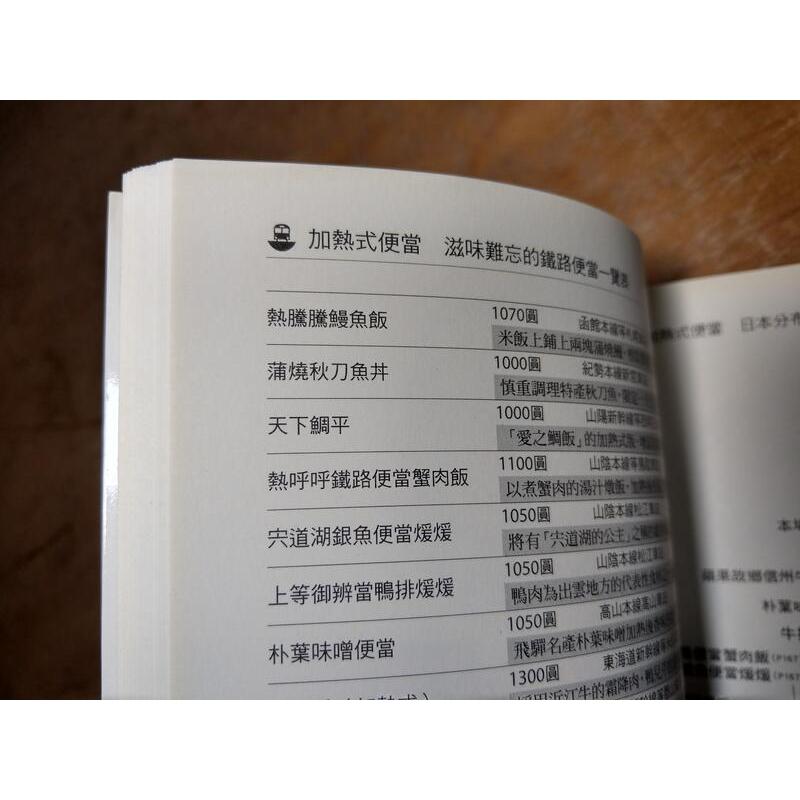 加熱式便當 滋味難忘的鐵路便當一覽表
熱騰騰鰻魚飯
1070圓
函館本線等札幌
米飯上鋪上兩塊蒲燒鰻，
蒲燒秋刀魚丼
1000圓
紀勢本線新宮
慎重調理特產秋刀魚，
天下鯛平
1000圓
山陽新幹線等
「愛之鯛飯」的加熱式版，
熱呼呼鐵路便當蟹肉飯
1100圓
山陰本線等鳥取
以煮蟹肉的湯汁燉飯，加熱後
宍道湖銀魚便當煖煖
1050圓
山陰本線松江車站
將有「宍道湖的公主」之稱的
上等御辨當鴨排煖煖
1050圓
山陰本線松江車站
鴨肉為出雲地方的代表性食材
朴葉味噌便當
1050圓
高山本線高山車站
飛驒名產朴葉味噌加熱後香
1300圓
東海道新幹線等
採用近江牛的霜降肉，
加熱式便當 日本分布
本場
蘋果故鄉信州牛
朴葉味
牛
當蟹肉飯(P167
便當煖煖(P167